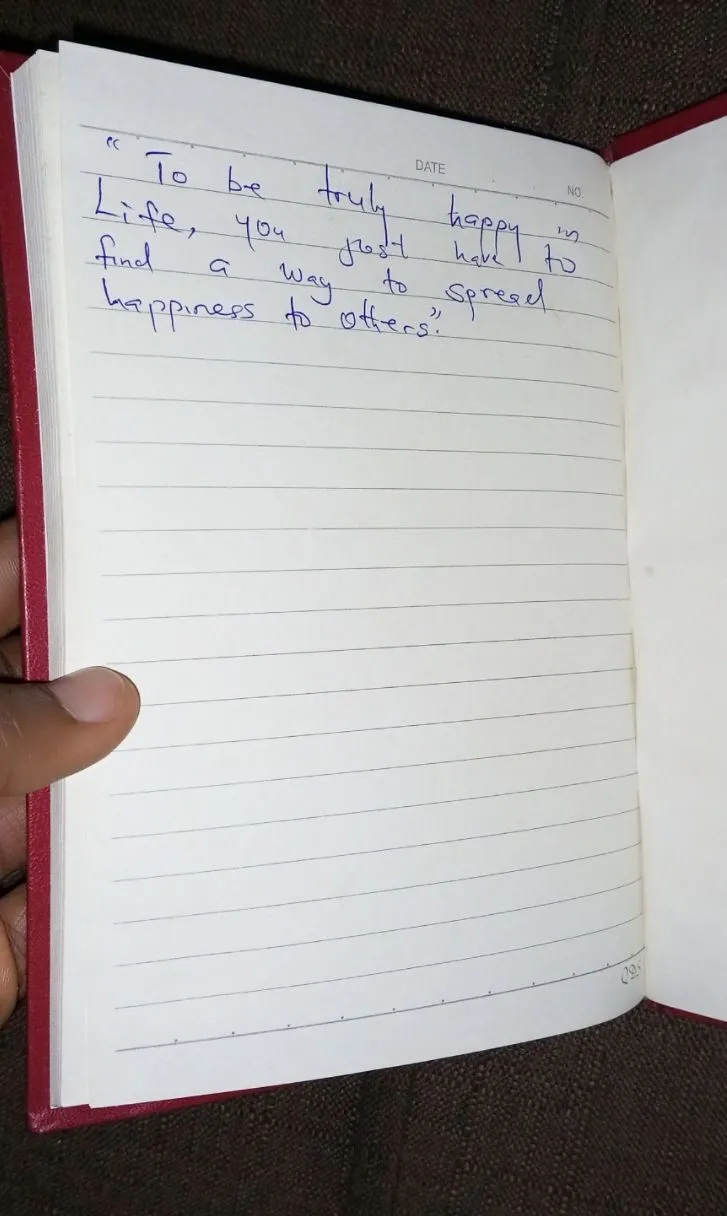 DATE
NO.
“ To be truly happy in
Life, you just have to
find a way to spread
happiness to others”.